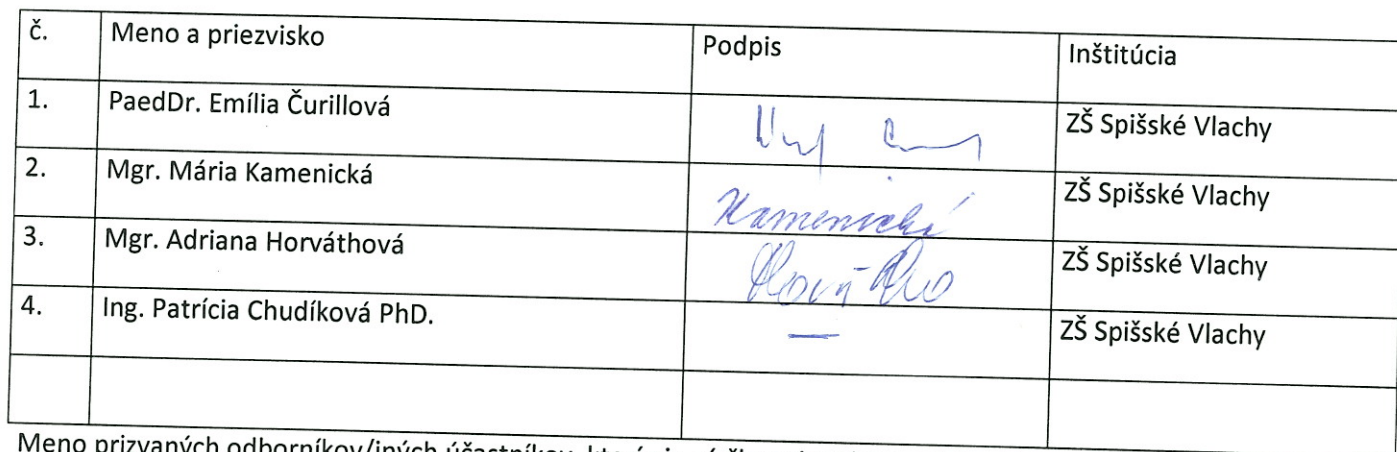 č. Meno a priezvisko Podpis Inštitúcia
1. PaedDr. Emília Čurillová ZŠ Spišské Vlachy
2. Mgr. Mária Kamenická Kamenická ZŠ Spišské Vlachy
3. Mgr. Adriana Horváthová ZŠ Spišské Vlachy
4. Ing. Patrícia Chudíková PhD. — ZŠ Spišské Vlachy
Meno prizvaných odborníkov/iných účastníkov, ktorí